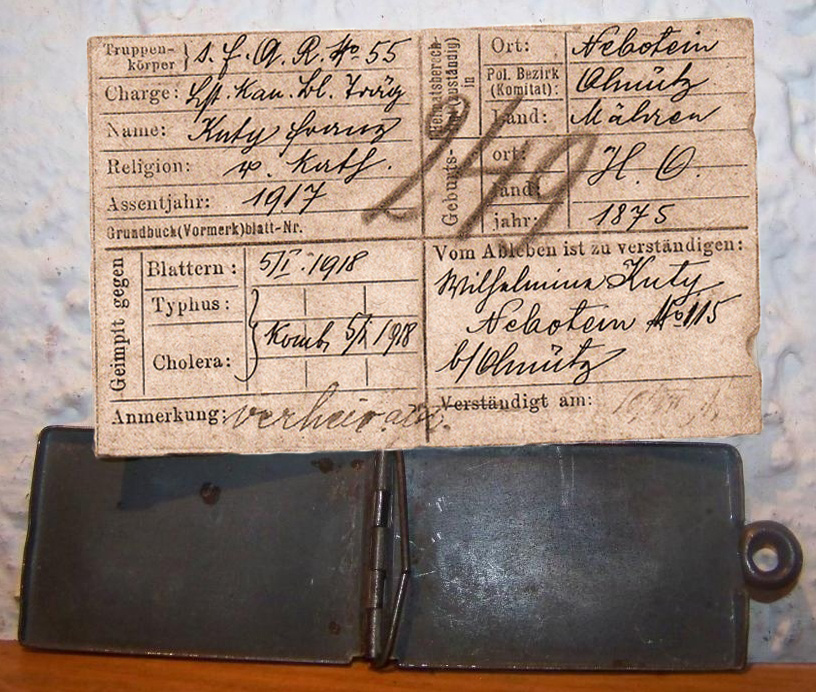 Truppen-körper } s. f. A. R. No 55
Charge: Lst. Kan. Bl. Träg
Name: Kuty Franz
Religion: r. kath.
Assentjahr: 1917
Grundbuch(Vormerk)blatt-Nr.
249
Heimatsberech-
(zuständig)
in
Ort: Nebotein
Pol. Bezirk (Komitat): Olmütz
Land: Mähren
Geburts-
ort: H. O.
land:
jahr: 1875
Geimpft gegen
Blattern: 5/I. 1918
Typhus:
Komb. 5/I 1918
Cholera:
Anmerkung: verheiratet.
Vom Ableben ist zu verständigen:
Wilhelmine Kuty
Nebotein No 115
b/Olmütz
Verständigt am: